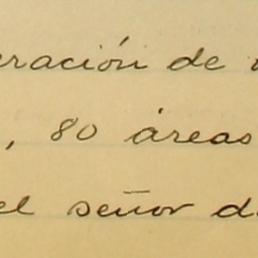 eración de
, 80 áreas
el señor de